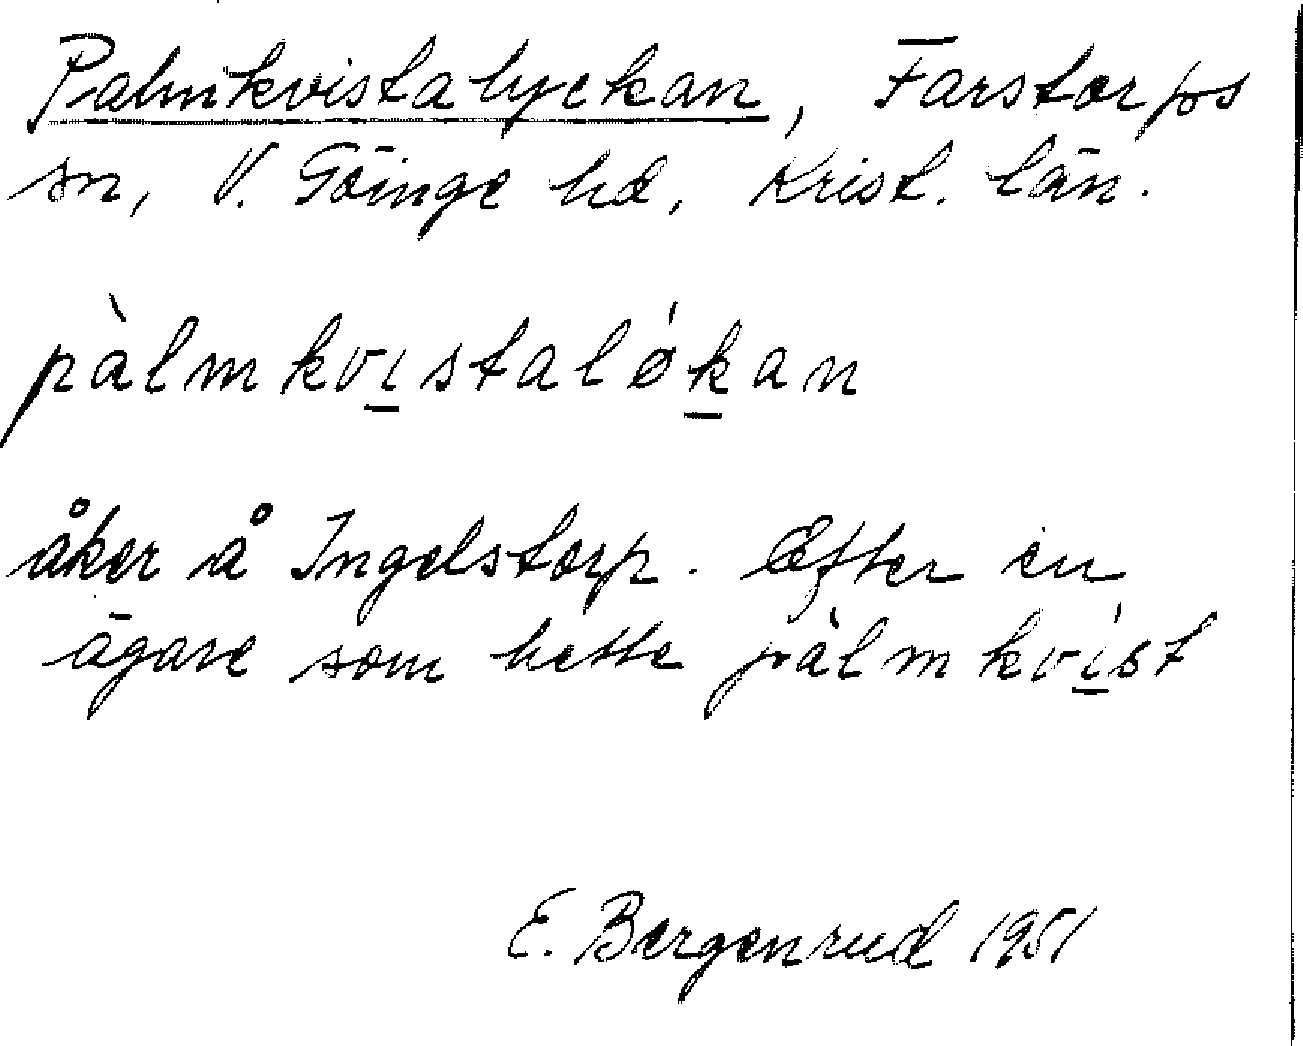 Palmkvistalyckan, Farstorps
sn, V. Göinge hd, Krist. län.
pàlmkvi̲staløʹk̲an
åker å Ingelstorp. Efter en
ägare som hette pàlmkvi̲st
E. Bergenrud 1951